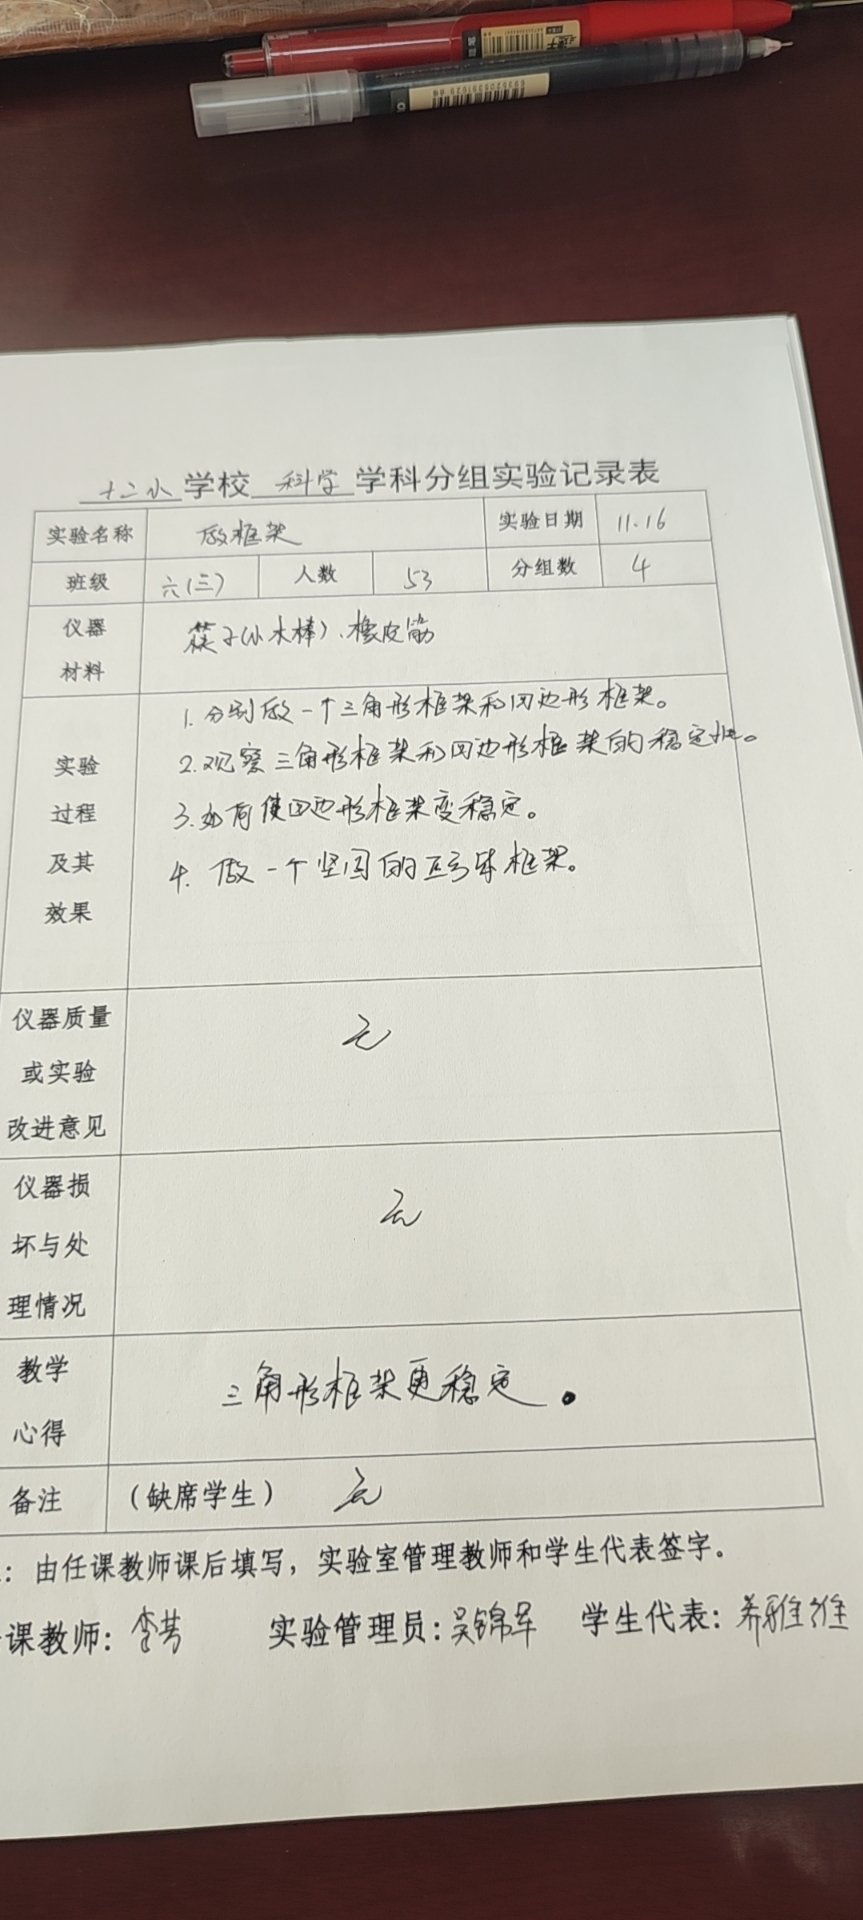 十二小 学校 科学 学科分组实验记录表
实验名称 做框架 实验日期 11.16
班级 六(三) 人数 53 分组数 4
仪器
材料
筷子(小木棒)、橡皮筋
实验
过程
及其
效果
1. 分别做一个三角形框架和四边形框架。
2. 观察三角形框架和四边形框架的稳定性。
3. 如何使四边形框架变稳定。
4. 做一个坚固的正方体框架。
仪器质量
或实验
改进意见
无
仪器损
坏与处
理情况
无
教学
心得
三角形框架更稳定。
备注 (缺席学生) 无
：由任课教师课后填写，实验室管理教师和学生代表签字。
课教师：李芳 实验管理员：吴锦军 学生代表：